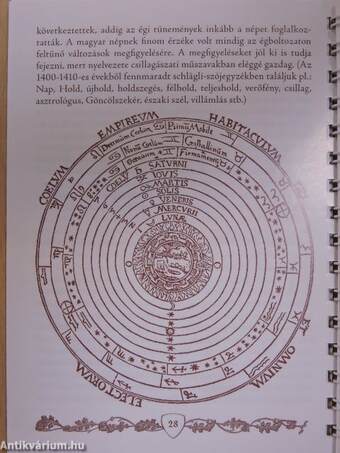 következtettek, addig az égi tünemények inkább a népet foglalkoz-
tatták. A magyar népnek finom érzéke volt mindig az égboltozaton
feltűnő változások megfigyelésére. A megfigyeléseket jól ki is tudja
fejezni, mert nyelvezete csillagászati műszavakban eléggé gazdag. (Az
1400-1410-es évekből fennmaradt schlägli-szójegyzékben találjuk pl.:
Nap, Hold, újhold, holdszegés, félhold, teljeshold, verőfény, csillag,
asztrológus, Göncölszekér, északi szél, villámlás stb.)
COELUM EMPIREUM HABITACULUM
Decimum Coelum Primū Mobile
Nonū Coelum Cristallinum
Firmamentū
COELŪ SATURNI
IOVIS
MARTIS
SOLIS
VENERIS
MERCURII
LUNÆ
ELECTORUM
OMNIUM
28
Antikvárium.hu